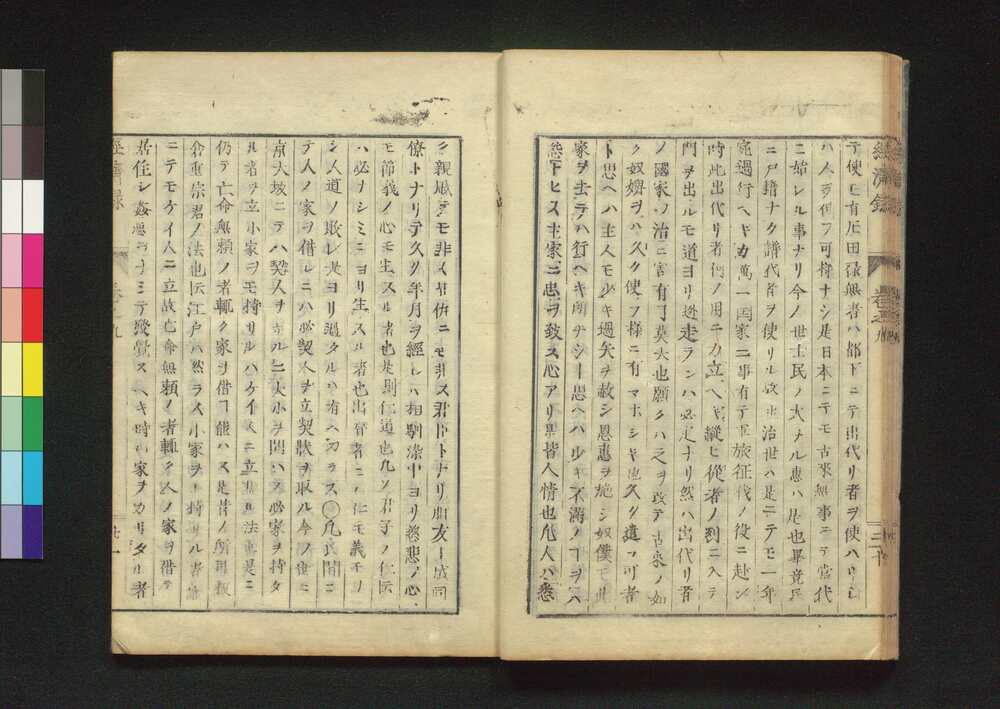 經濟録
卷之九
三十
テ使ヒ有
田禄無者ハ都下ニテ出代リ者ヲ使ハ
ハ人
可樣ナシ是日本ニテモ古來無事ニテ當代
ニ始レル事ナリ今ノ世士民ノ大ナル患ハ是也畢竟民
ニ戸籍ナク譜代者ヲ使
故
治世ハ是ニテモ一年
過行ヘキカ萬一國家ニ事有テ軍旅征伐ノ役ニ赴ン
時此出代リ者
ノ用ニカ立ヘキ縱ヒ從者ノ列ニ入テ
門ヲ出ルモ道ヨリ逃走ランハ必定ナリ然ハ出代リ者
ノ國家ノ治ニ害有
莫大也願クハ之ヲ改テ古來ノ如
ク奴婢ヲハ久ク使フ樣ニ有マホシキ也久ク遣フ可者
ト思ヘハ主人モ少キ過失ヲ赦シ恩惠ヲ施シ奴僕モ此
家ヲ出テハ行ヘキ所ナシト思ヘハ少キ不滿ノ
ヲハ
ヒス主家ニ忠ヲ致ス心アリ是皆人情也凡人ハ悉
ク親戚ニテモ非ス
ニモ非ス君臣トナリ朋友ト成同
僚トナリテ久ク年月ヲ經レハ相馴
中ヨリ慈悲ノ心
モ節義ノ心モ生スル者也是則仁道也凡ソ君子ノ仁
ハ必ナシミニヨリ生スル者也出替者ニハ仁モ義モ
シ人道ノ敗レ是ヨリ過タルハ有ヘカラス○凡民間ニ
テ人ノ家ヲ借ルニハ必契人ヲ立契狀ヲ取ル今ノ世ニ
京大坂ニテハ契人ヲ
大小ヲ問ハス必家ヲ持タ
ル者ヲ立小家ヲモ持サルハケイ人ニ立
法
是ニ
仍テ亡命無賴ノ者輒ク家ヲ借
能ハス是昔ノ所司板
倉重宗君ノ法也
江戸ハ然ラス小家ヲモ持サル者
ニテモケイ人ニ立故亡命無賴ノ者輒ク人ノ家ヲ借テ
居住シ姦惡ヲナシテ發覺スヘキ時ハ家ヲカリタル者
經濟録
卷之九
廿一